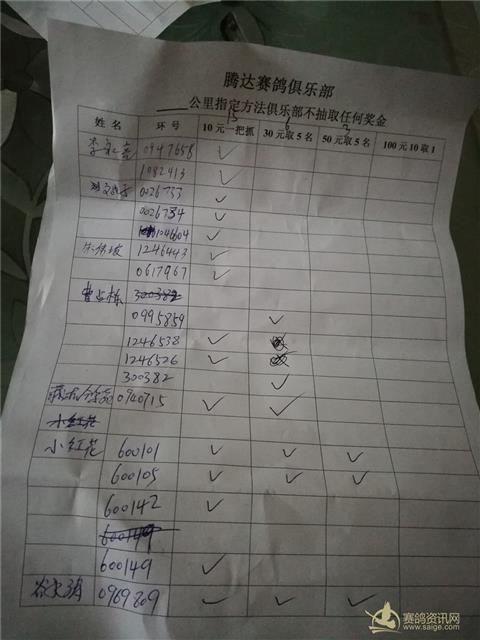 腾达赛鸽俱乐部
公里指定方法俱乐部不抽取任何奖金
15 6 3
姓名 环号 10元一把抓 30元取5名 50元取5名 100元10取1
0947658 ✓
1082413 ✓
0026733 ✓
0026734 ✓
1246604 ✓
1246443 ✓
0617967 ✓
300382
0995859 ✓
1246538 ✓
1246526 ✓
300382 ✓
0940715 ✓ ✓
小红花
小红花 600101 ✓ ✓ ✓
600105 ✓ ✓ ✓
600142 ✓
600149
600149 ✓
0969809 ✓ ✓ ✓
赛鸽资讯网
www.saige.com